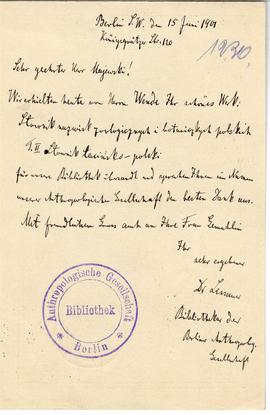 Berlin S.W. den 15 Juni 1901
Königgrätzer Str. 120
1930.
Sehr geehrter Herr Majewski!
Wir erhielten heute von Herrn Wende Ihr schönes Werk:
Słownik nazwisk zoologicznych i botanicznych polskich
T. II Słownik Łacińsko-polski
für unsere Bibliothek und sprechen Ihnen im Namen
unserer Anthropologischen Gesellschaft den besten Dank aus.
Mit freundlichem Gruss auch an Ihre Frau Gemahlin
Ihr
sehr ergebener
Dr
Bibliothekar der
Berliner Anthropolog.
Gesellschaft
Anthropologische Gesellschaft
Bibliothek
Berlin